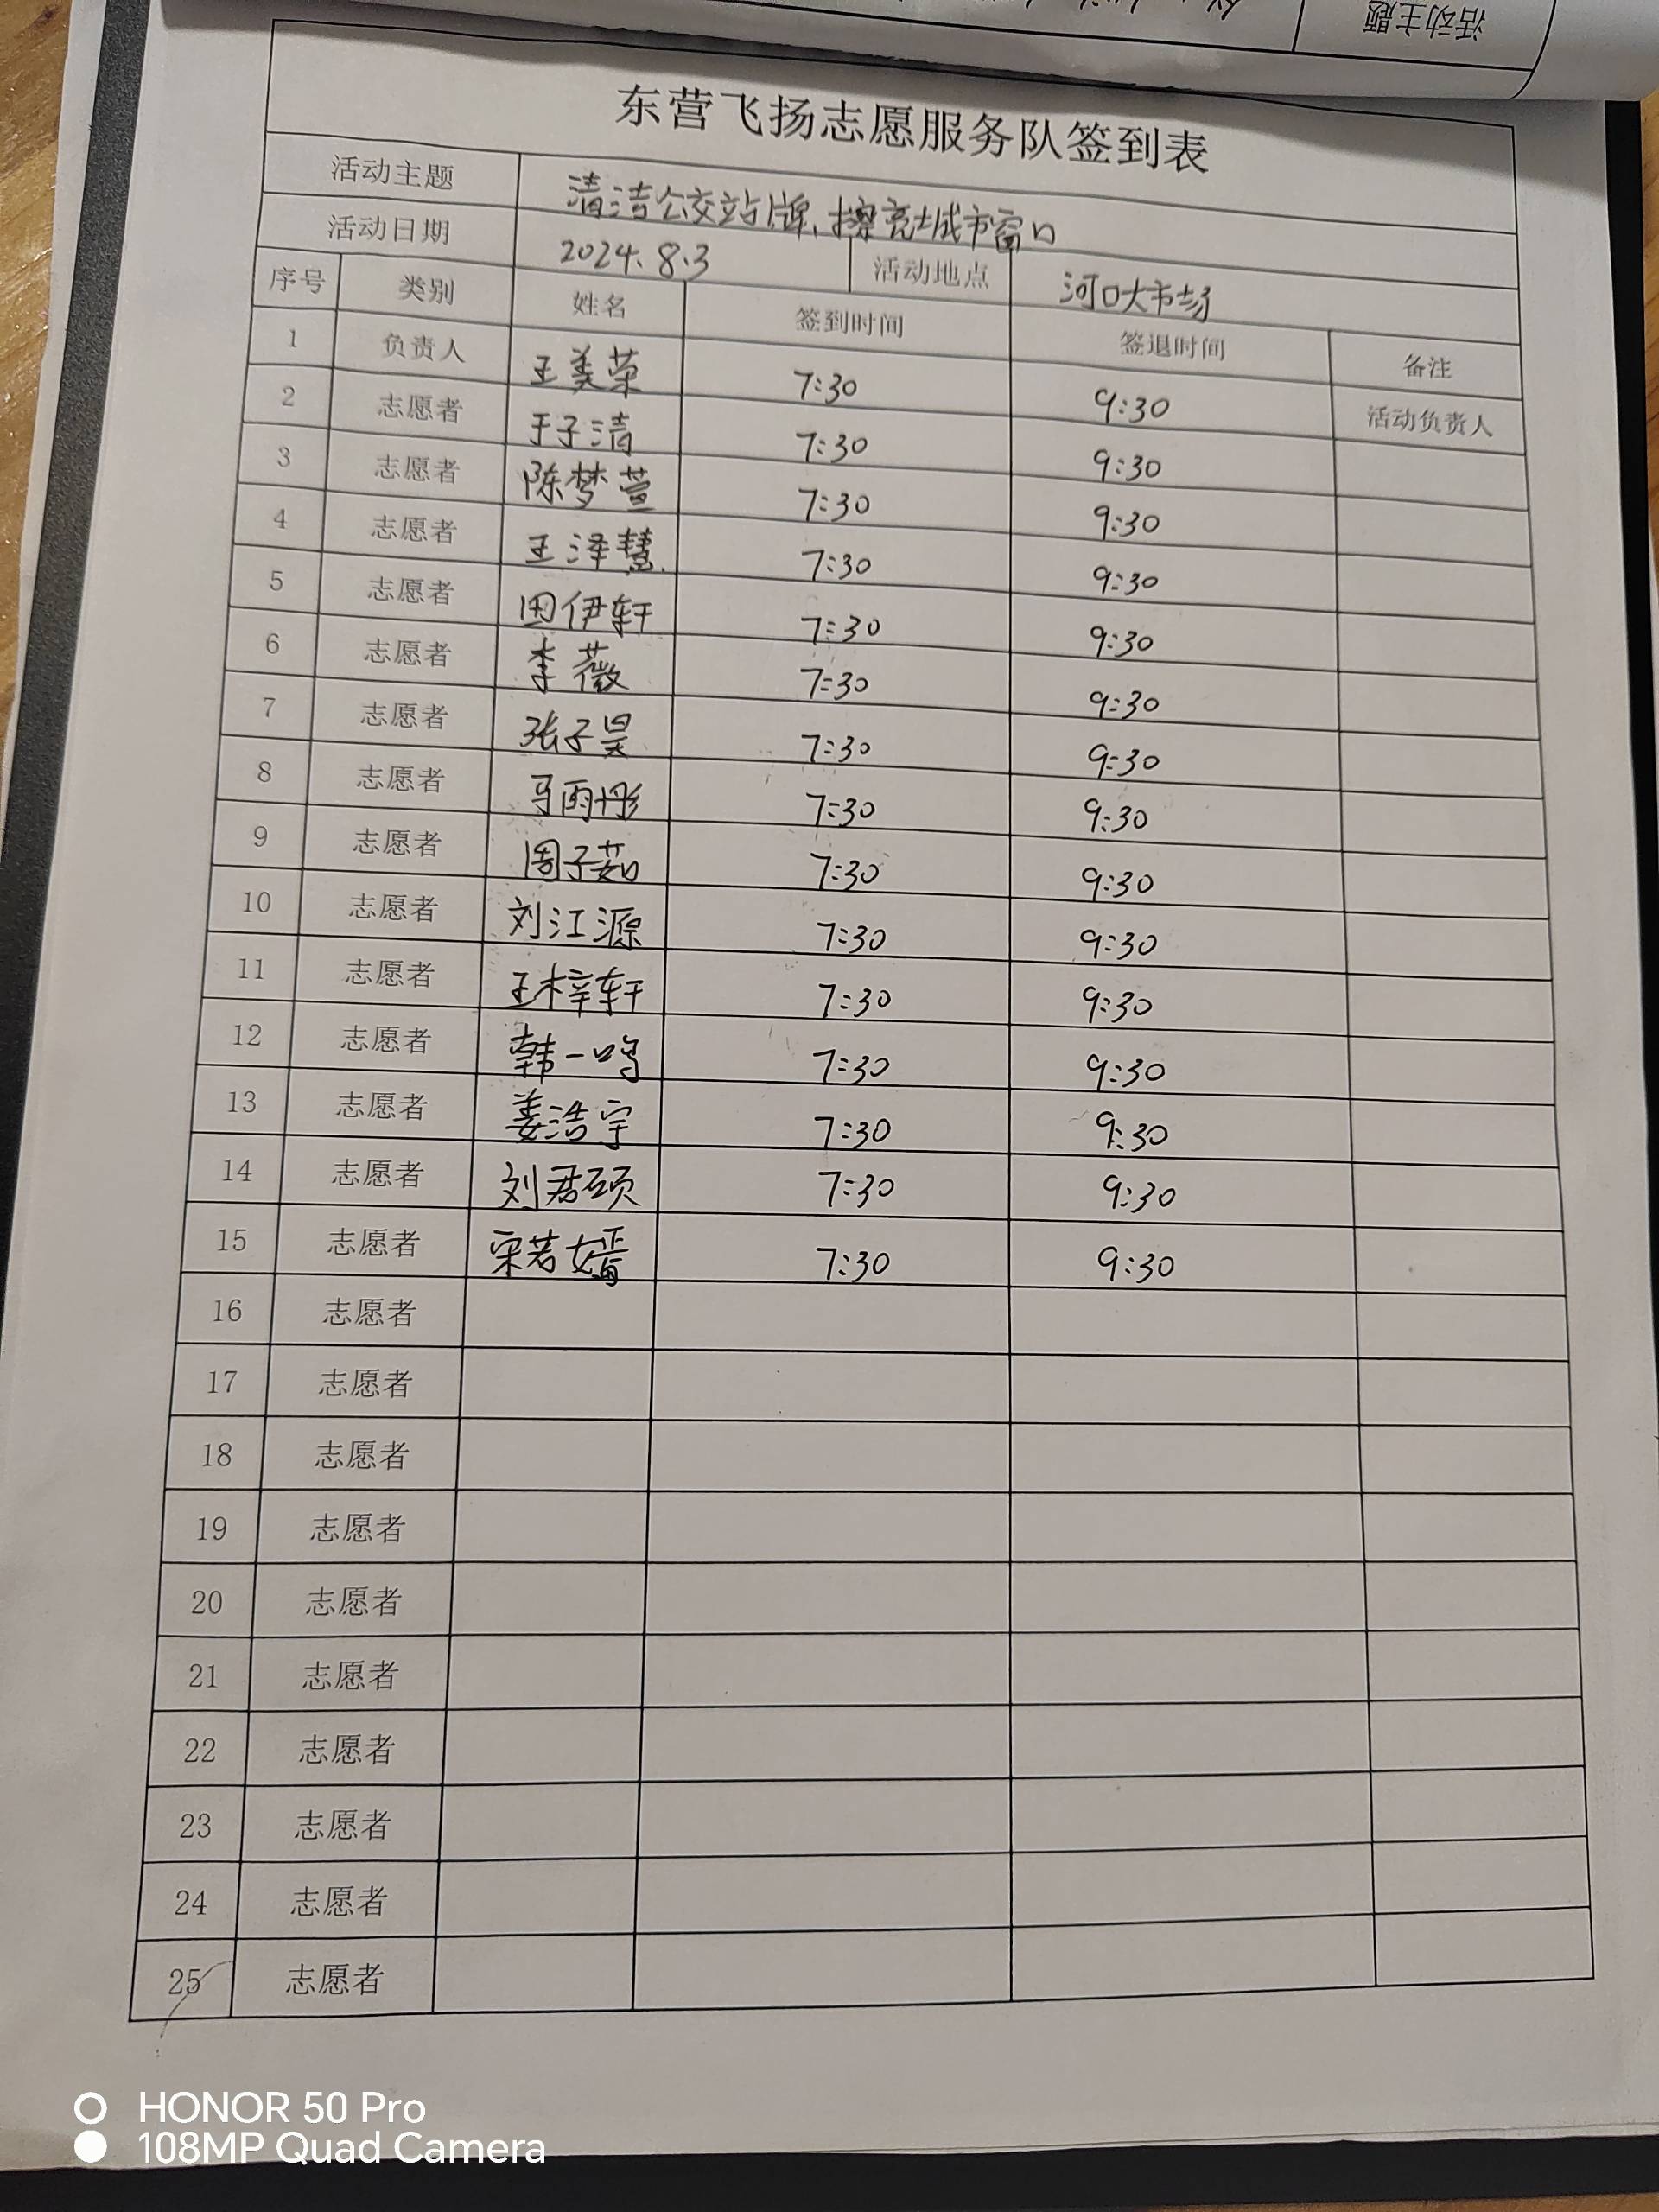 活动主题
东营飞扬志愿服务队签到表
活动主题 清洁公交站牌、擦亮城市窗口
活动日期 2024.8.3 活动地点 河口大市场
序号 类别 姓名 签到时间 签退时间 备注
1 负责人 王美荣 7:30 9:30 活动负责人
2 志愿者 于子清 7:30 9:30
3 志愿者 陈梦萱 7:30 9:30
4 志愿者 王泽慧 7:30 9:30
5 志愿者 田伊轩 7:30 9:30
6 志愿者 李薇 7:30 9:30
7 志愿者 张子昊 7:30 9:30
8 志愿者 马雨彤 7:30 9:30
9 志愿者 周子茹 7:30 9:30
10 志愿者 刘江源 7:30 9:30
11 志愿者 王梓轩 7:30 9:30
12 志愿者 韩一鸣 7:30 9:30
13 志愿者 姜浩宇 7:30 9:30
14 志愿者 刘君硕 7:30 9:30
15 志愿者 宋若嫣 7:30 9:30
16 志愿者
17 志愿者
18 志愿者
19 志愿者
20 志愿者
21 志愿者
22 志愿者
23 志愿者
24 志愿者
25 志愿者
HONOR 50 Pro
108MP Quad Camera